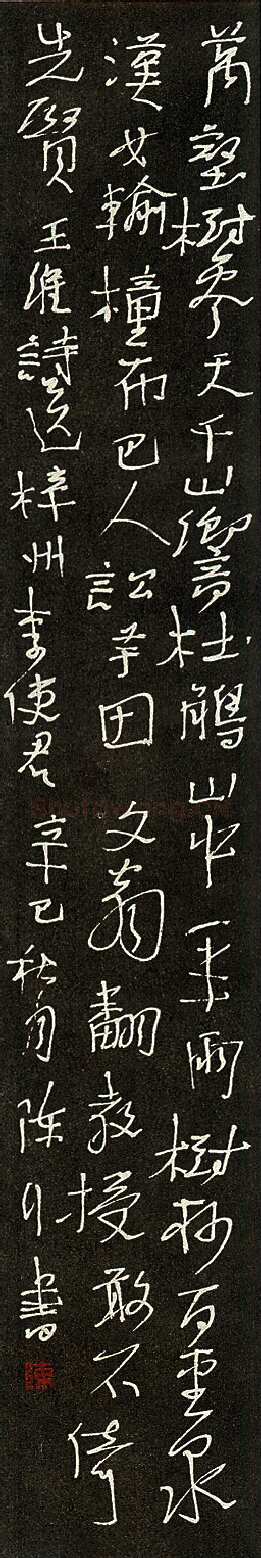 萬壑樹參天千山響杜鵑山中一半雨樹杪百重泉
漢女輸橦布巴人訟芋田文翁翻教授敢不倚
先賢 王維詩送梓州李使君 辛巳秋月 陳書